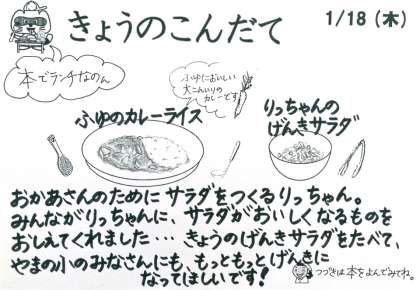 きょうのこんだて
1/18（木）
本でランチなのん
ふゆにおいしい
大こんいりの
カレーです
ふゆのカレーライス
りっちゃんの
げんきサラダ
おかあさんのために サラダをつくるりっちゃん。
みんながりっちゃんに、サラダがおいしくなるものを
おしえてくれました… きょうのげんきサラダをたべて、
やまの小のみなさんにも、もっともっとげんきに
なってほしいです!
つづきは本をよんでみてね。